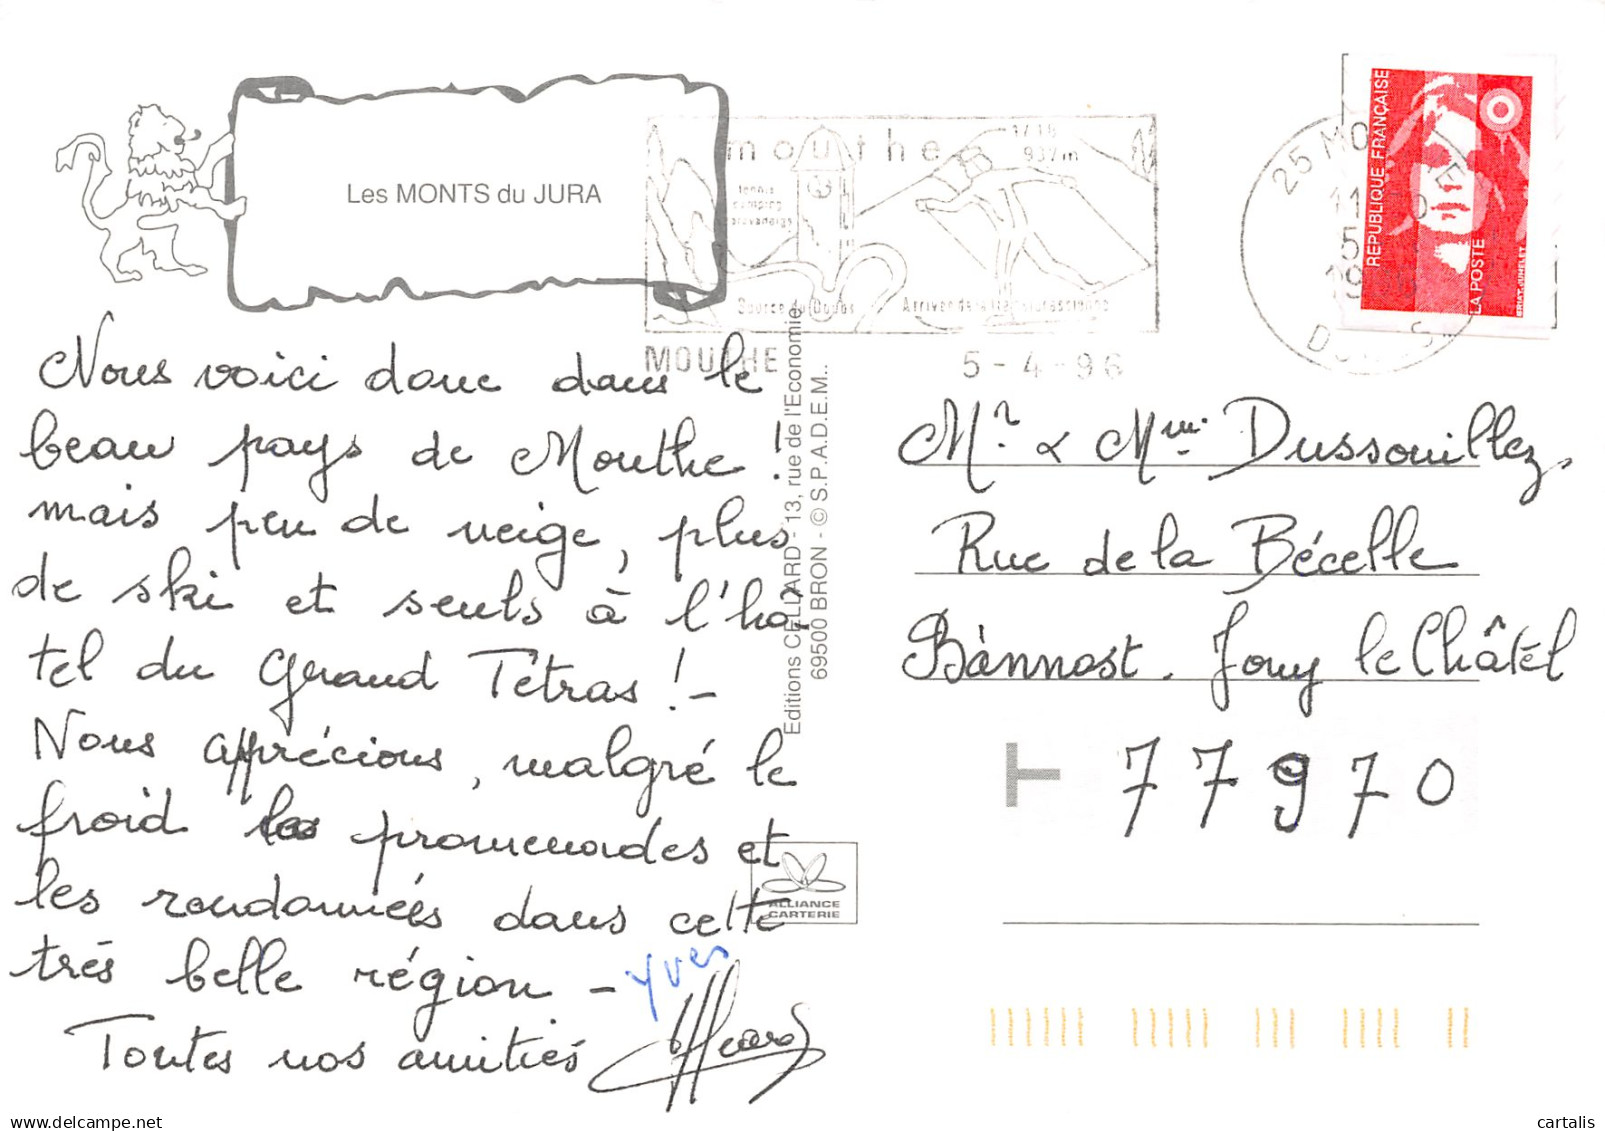 Les MONTS du JURA
mouthe
937m
tennis
camping
caravaneige
Source du Doubs
MOUTHE
5-4-96
25 MOUTHE
DOUBS
RÉPUBLIQUE FRANÇAISE
LA POSTE
Nous voici donc dans le
beau pays de Mouthe !
mais peu de neige, plus
de ski et seuls à l'hô-
tel du Grand Tétras ! -
Nous apprécions, malgré le
froid les promenades et
les randonnées dans cette
très belle région -
Yves
Toutes nos amitiés
Editions CELLARD - 13, rue de l'Economie
69500 BRON - © S.P.A.D.E.M..
ALLIANCE
CARTERIE
Mr & Mme Dussouillez
Rue de la Bécelle
Bannost. Jouy le Châtel
77970
delcampe.net
cartalis